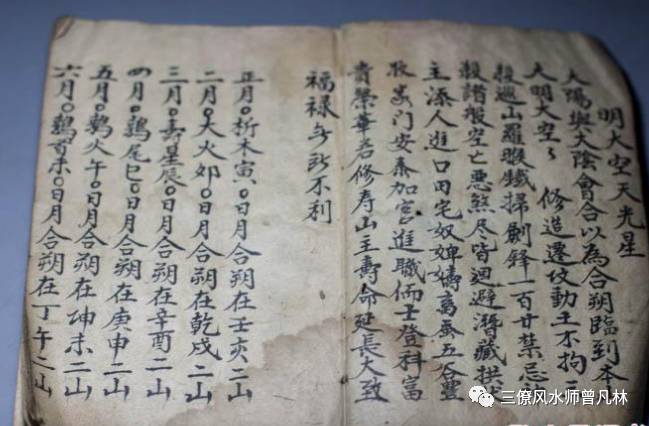 明大空天光星
太陽與太陰會合以為合朔臨到本
大明大空〻 修造遷伩動土不拘
殺廻山羅睺鐵掃剷鋒一百廿禁忌
殺諸般空亡惡煞尽皆迴避潛藏拱
主添人進口田宅奴婢婦畜蚕五谷豐
敗安門安泰加官進職儒士登科富
貴榮華若修寿山主壽命延長大致
福禄無所不利
正月〇析木寅〇日月合朔在壬亥二山
二月〇大火夘〇日月合朔在乾戌二山
三月〇壽星辰〇日月合朔在辛酉二山
四月〇鶉尾巳〇日月合朔在庚申二山
五月〇鶉火午〇日月合朔在坤未二山
六月〇鶉首未〇日月合朔在丁午二山
三僚风水师曾凡林